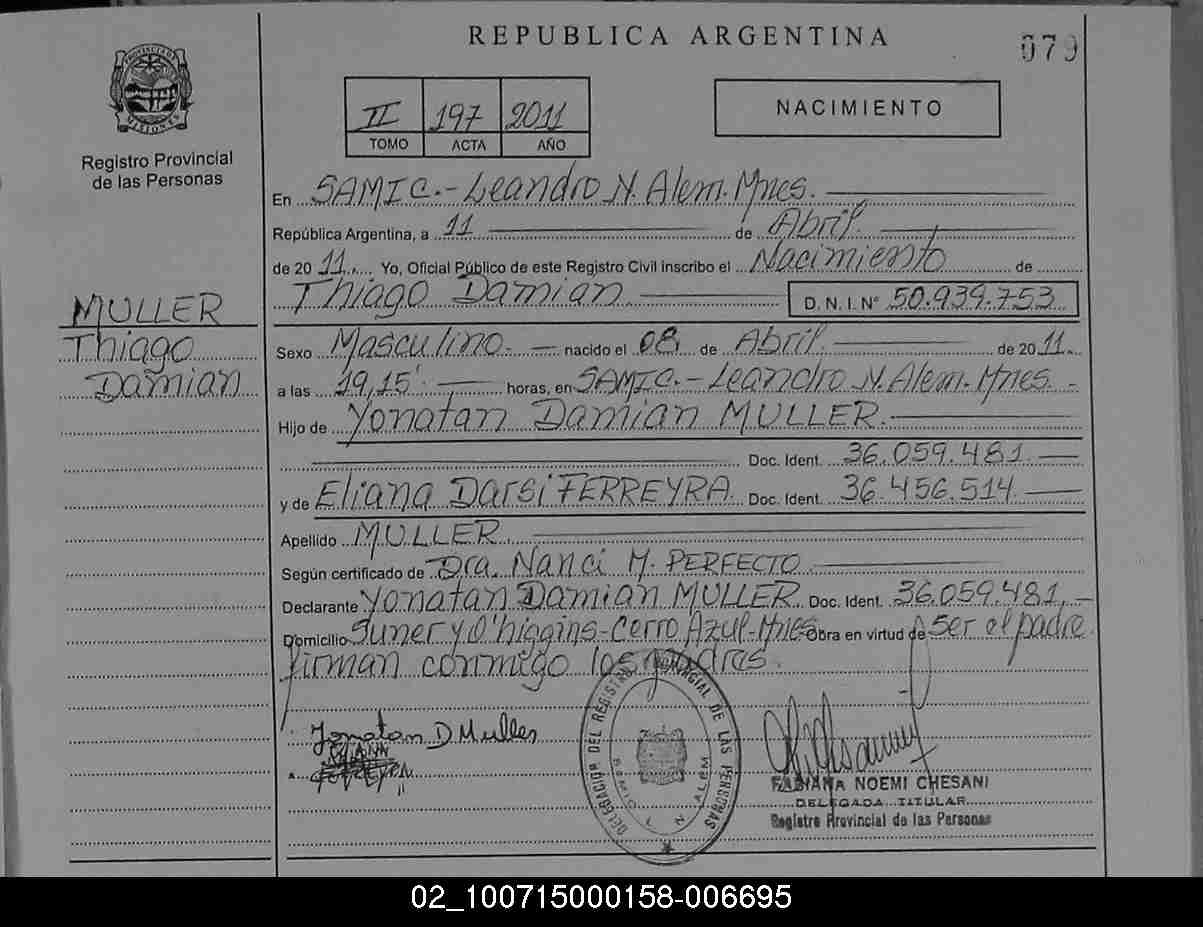 REPUBLICA ARGENTINA
079
PROVINCIA DE
MISIONES
Registro Provincial
de las Personas
II 197 2011
TOMO ACTA AÑO
NACIMIENTO
En SAMIC.- Leandro N. Alem. Mnes.
República Argentina, a 11 de Abril.
de 2011. Yo, Oficial Público de este Registro Civil inscribo el Nacimiento de
Thiago Damian. D. N. I. Nº 50.939.753
MULLER
Thiago
Damian
Sexo Masculino. nacido el 08 de Abril. de 2011.
a las 19,15' horas, en SAMIC.- Leandro N. Alem. Mnes.
Hijo de Yonatan Damian MULLER.
Doc. Ident. 36.059.481.
y de Eliana Darsi FERREYRA. Doc. Ident. 36.456.514
Apellido MULLER
Según certificado de Dra. Nanci M. PERFECTO
Declarante Yonatan Damian MULLER. Doc. Ident. 36.059.481.
Domicilio Suner y O'higgins - Cerro Azul - Mnes Obra en virtud de Ser el padre.
firman conmigo los padres.
Jonatan D Muller
DELEGACION DEL REGISTRO PROVINCIAL DE LAS PERSONAS
SAMIC L N ALEM
FABIANA NOEMI CHESANI
DELEGADA TITULAR
Registro Provincial de las Personas
02_100715000158-006695